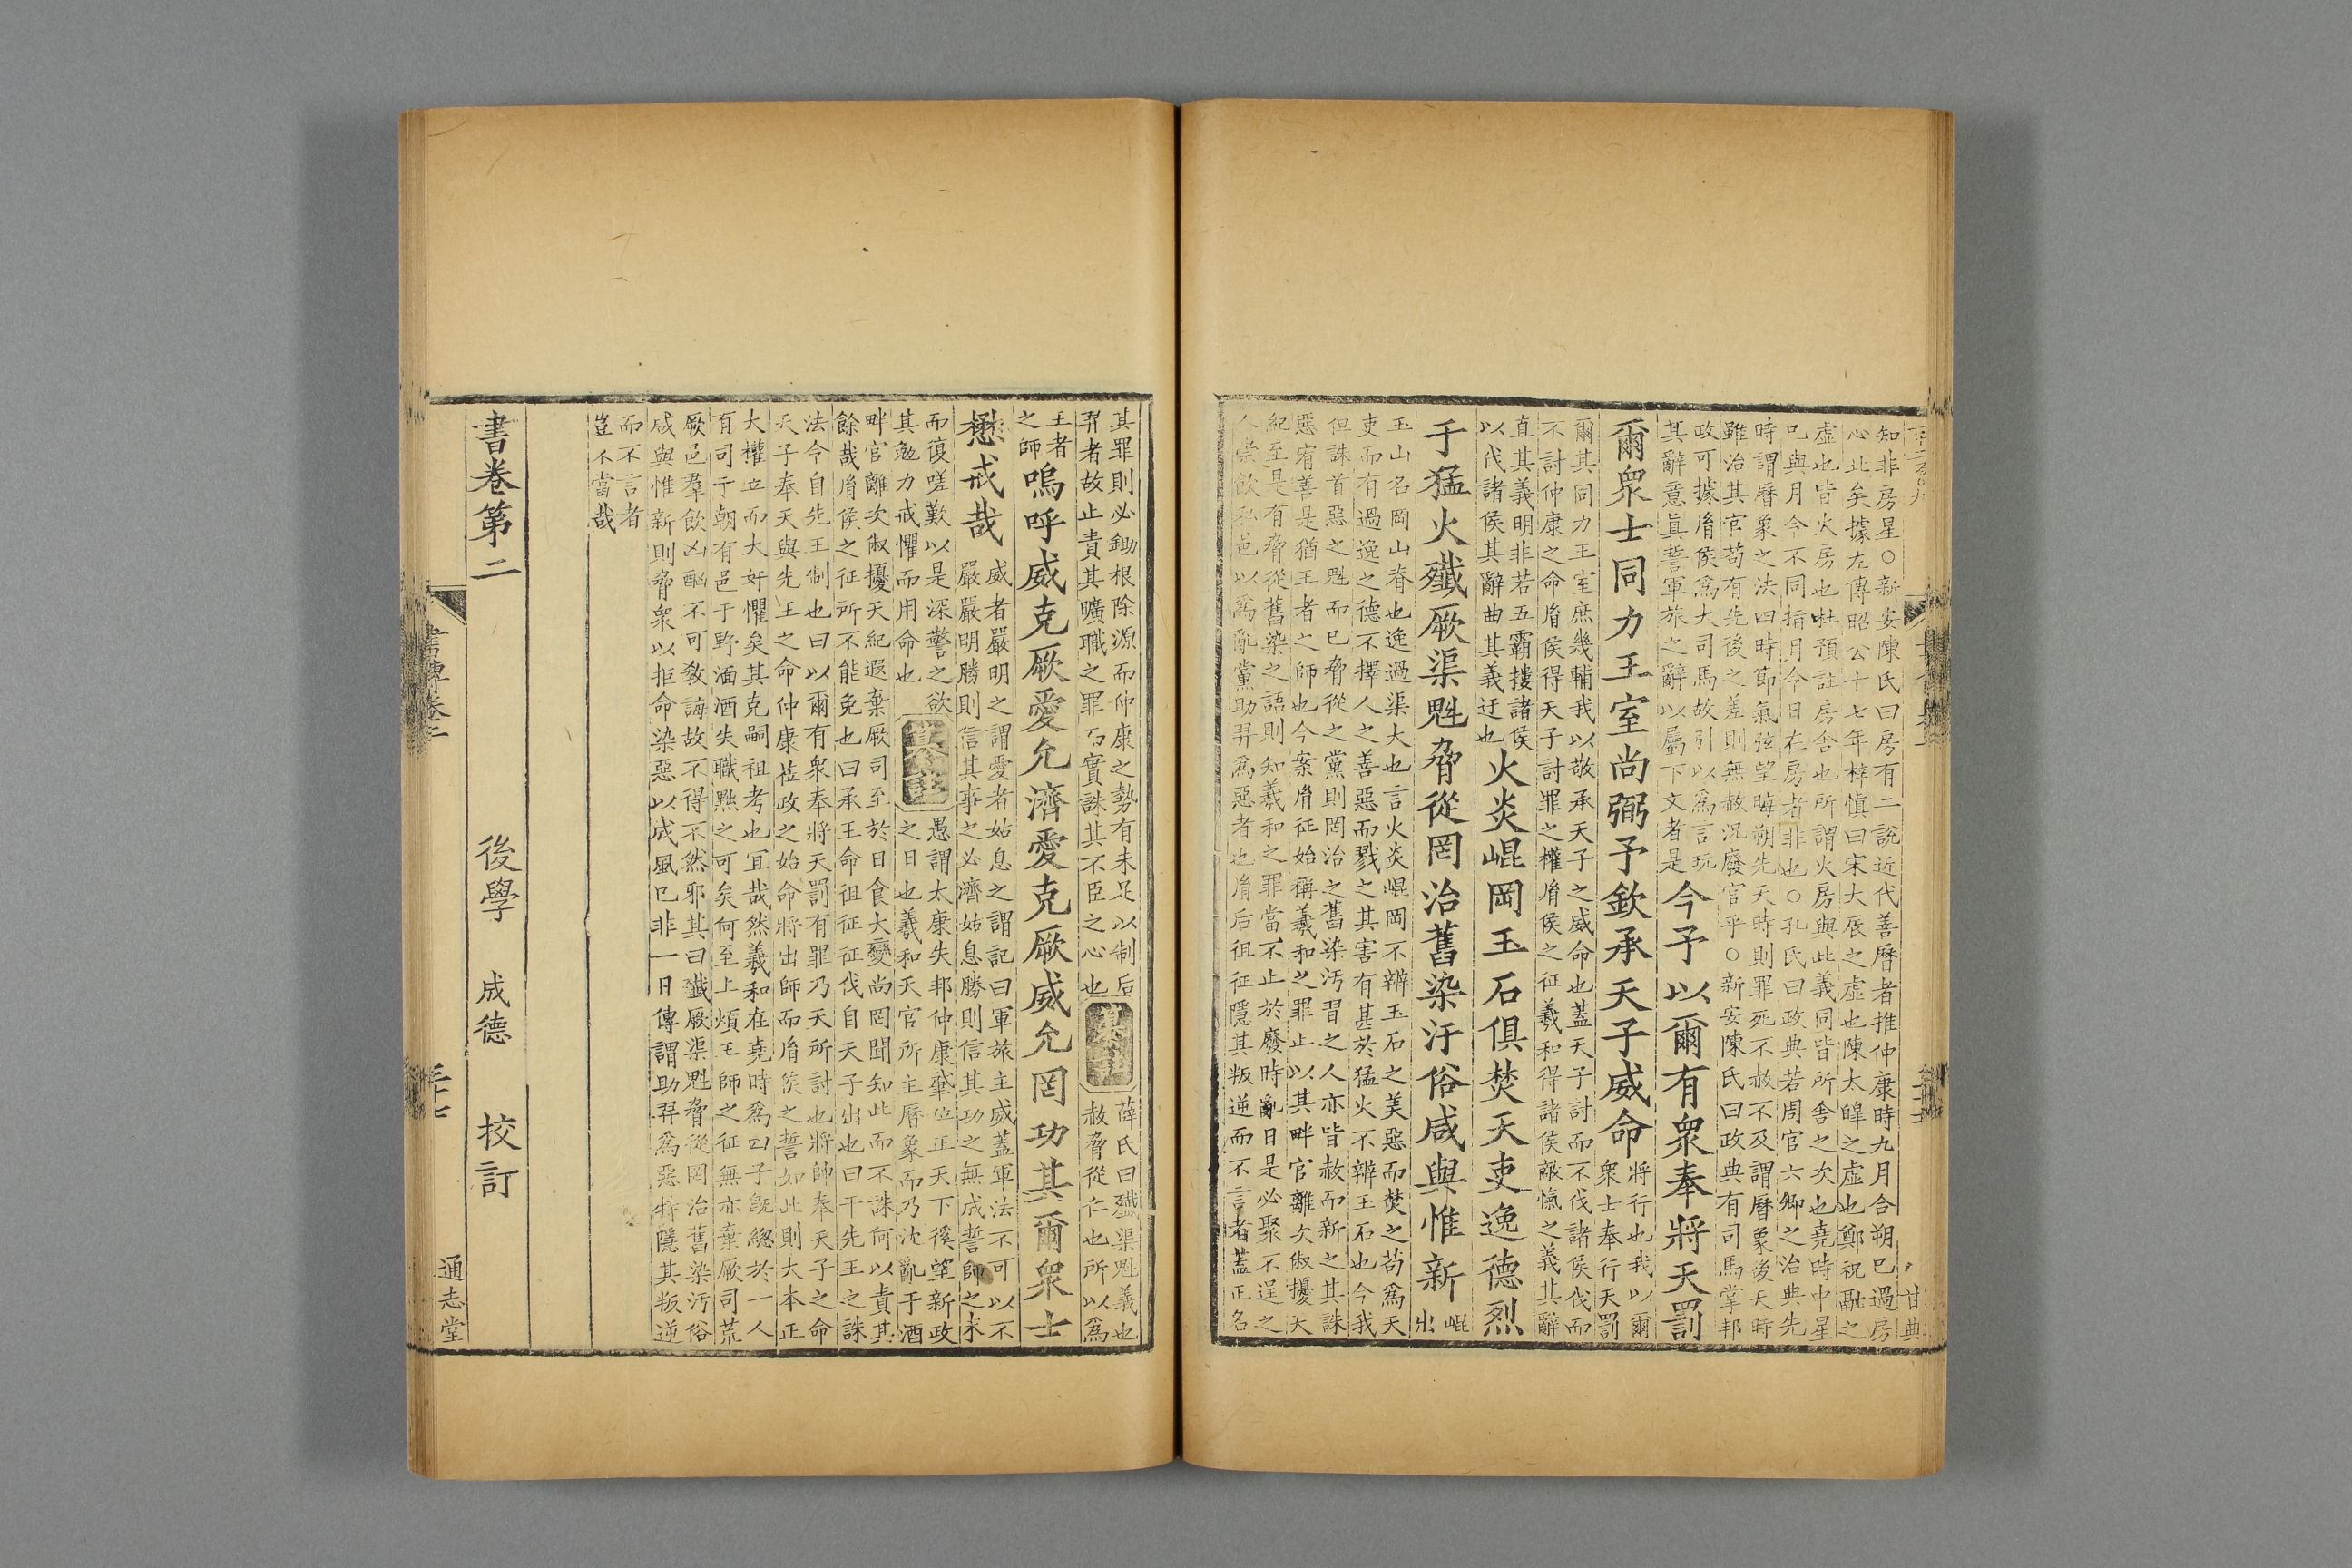 知非房星○新安陳氏曰房有二說近代善曆者推仲康時九月合朔已過房
心北矣據左傳昭公十七年梓慎曰宋大辰之虛也陳太皥之虛也鄭祝融之
虛也皆火房也杜預註房舍也所謂火房與此義同皆所舍之次也堯時中星
已與月令不同指月令日在房者非也○孔氏曰政典若周官六卿之治典先
時謂曆象之法四時節氣弦望晦朔先天時則罪死不赦不及謂曆象後天時
雖治其官苟有先後之差則無赦況廢官乎○新安陳氏曰政典有司馬掌邦
政可據胤侯爲大司馬故引以爲言玩
其辭意眞誓軍旅之辭以屬下文者是
今予以爾有衆奉將天罰
爾衆士同力王室尚弼予欽承天子威命
將行也我以爾
衆士奉行天罰
爾其同力王室庶幾輔我以敬承天子之威命也蓋天子討而不伐諸侯伐而
不討仲康之命胤侯得天子討罪之權胤侯之征羲和得諸侯敵愾之義其辭
直其義明非若五霸摟諸侯
以伐諸侯其辭曲其義迂也
火炎崐岡玉石俱焚天吏逸德烈
于猛火殲厥渠魁脅從罔治舊染汙俗咸與惟新
崐
出
玉山名岡山脊也逸過渠大也言火炎崐岡不辨玉石之美惡而焚之苟爲天
吏而有過逸之德不擇人之善惡而戮之其害有甚於猛火不辨玉石也今我
但誅首惡之魁而已脅從之黨則罔治之舊染汚習之人亦皆赦而新之其誅
惡宥善是猶王者之師也今案胤征始稱羲和之罪止以其畔官離次俶擾天
紀至是有脅從舊染之語則知羲和之罪當不止於廢時亂日是必聚不逞之
人崇飲私邑以爲亂黨助羿爲惡者也胤后徂征隱其叛逆而不言者蓋正名
其罪則必鋤根除源而仲康之勢有未足以制后
羿者故止責其曠職之罪而實誅其不臣之心也
纂註
薛氏曰殲渠魁義也
赦脅從仁也所以爲
王者
之師
嗚呼威克厥愛允濟愛克厥威允罔功其爾衆士
懋戒哉
威者嚴明之謂愛者姑息之謂記曰軍旅主威蓋軍法不可以不
嚴嚴明勝則信其事之必濟姑息勝則信其功之無成誓師之末
而復嗟歎以是深警之欲
其勉力戒懼而用命也
纂註
愚謂太康失邦仲康肇位正天下徯望新政
之日也羲和天官所主曆象而乃沈亂于酒
畔官離次俶擾天紀遐棄厥司至於日食大變尚罔聞知此而不誅何以責其
餘哉胤侯之征所不能免也曰承王命徂征征伐自天子出也曰干先王之誅
法今自先王制也曰以爾有衆奉將天罰有罪乃天所討也將帥奉天子之命
天子奉天與先王之命仲康莅政之始命將出師而胤侯之誓如此則大本正
大權立而大奸懼矣其克嗣祖考也宜哉然羲和在堯時爲四子旣總於一人
有司于朝有邑于野湎酒失職黜之可矣何至上煩王師之征無亦棄厥司荒
厥邑羣飲凶酗不可敎誨故不得不然邪其曰殲厥渠魁脅從罔治舊染汚俗
咸與惟新則脅衆以拒命染惡以成風已非一日傳謂助羿爲惡特隱其叛逆
而不言者
豈不當哉
書卷第二
後學 成德 校訂
通志堂